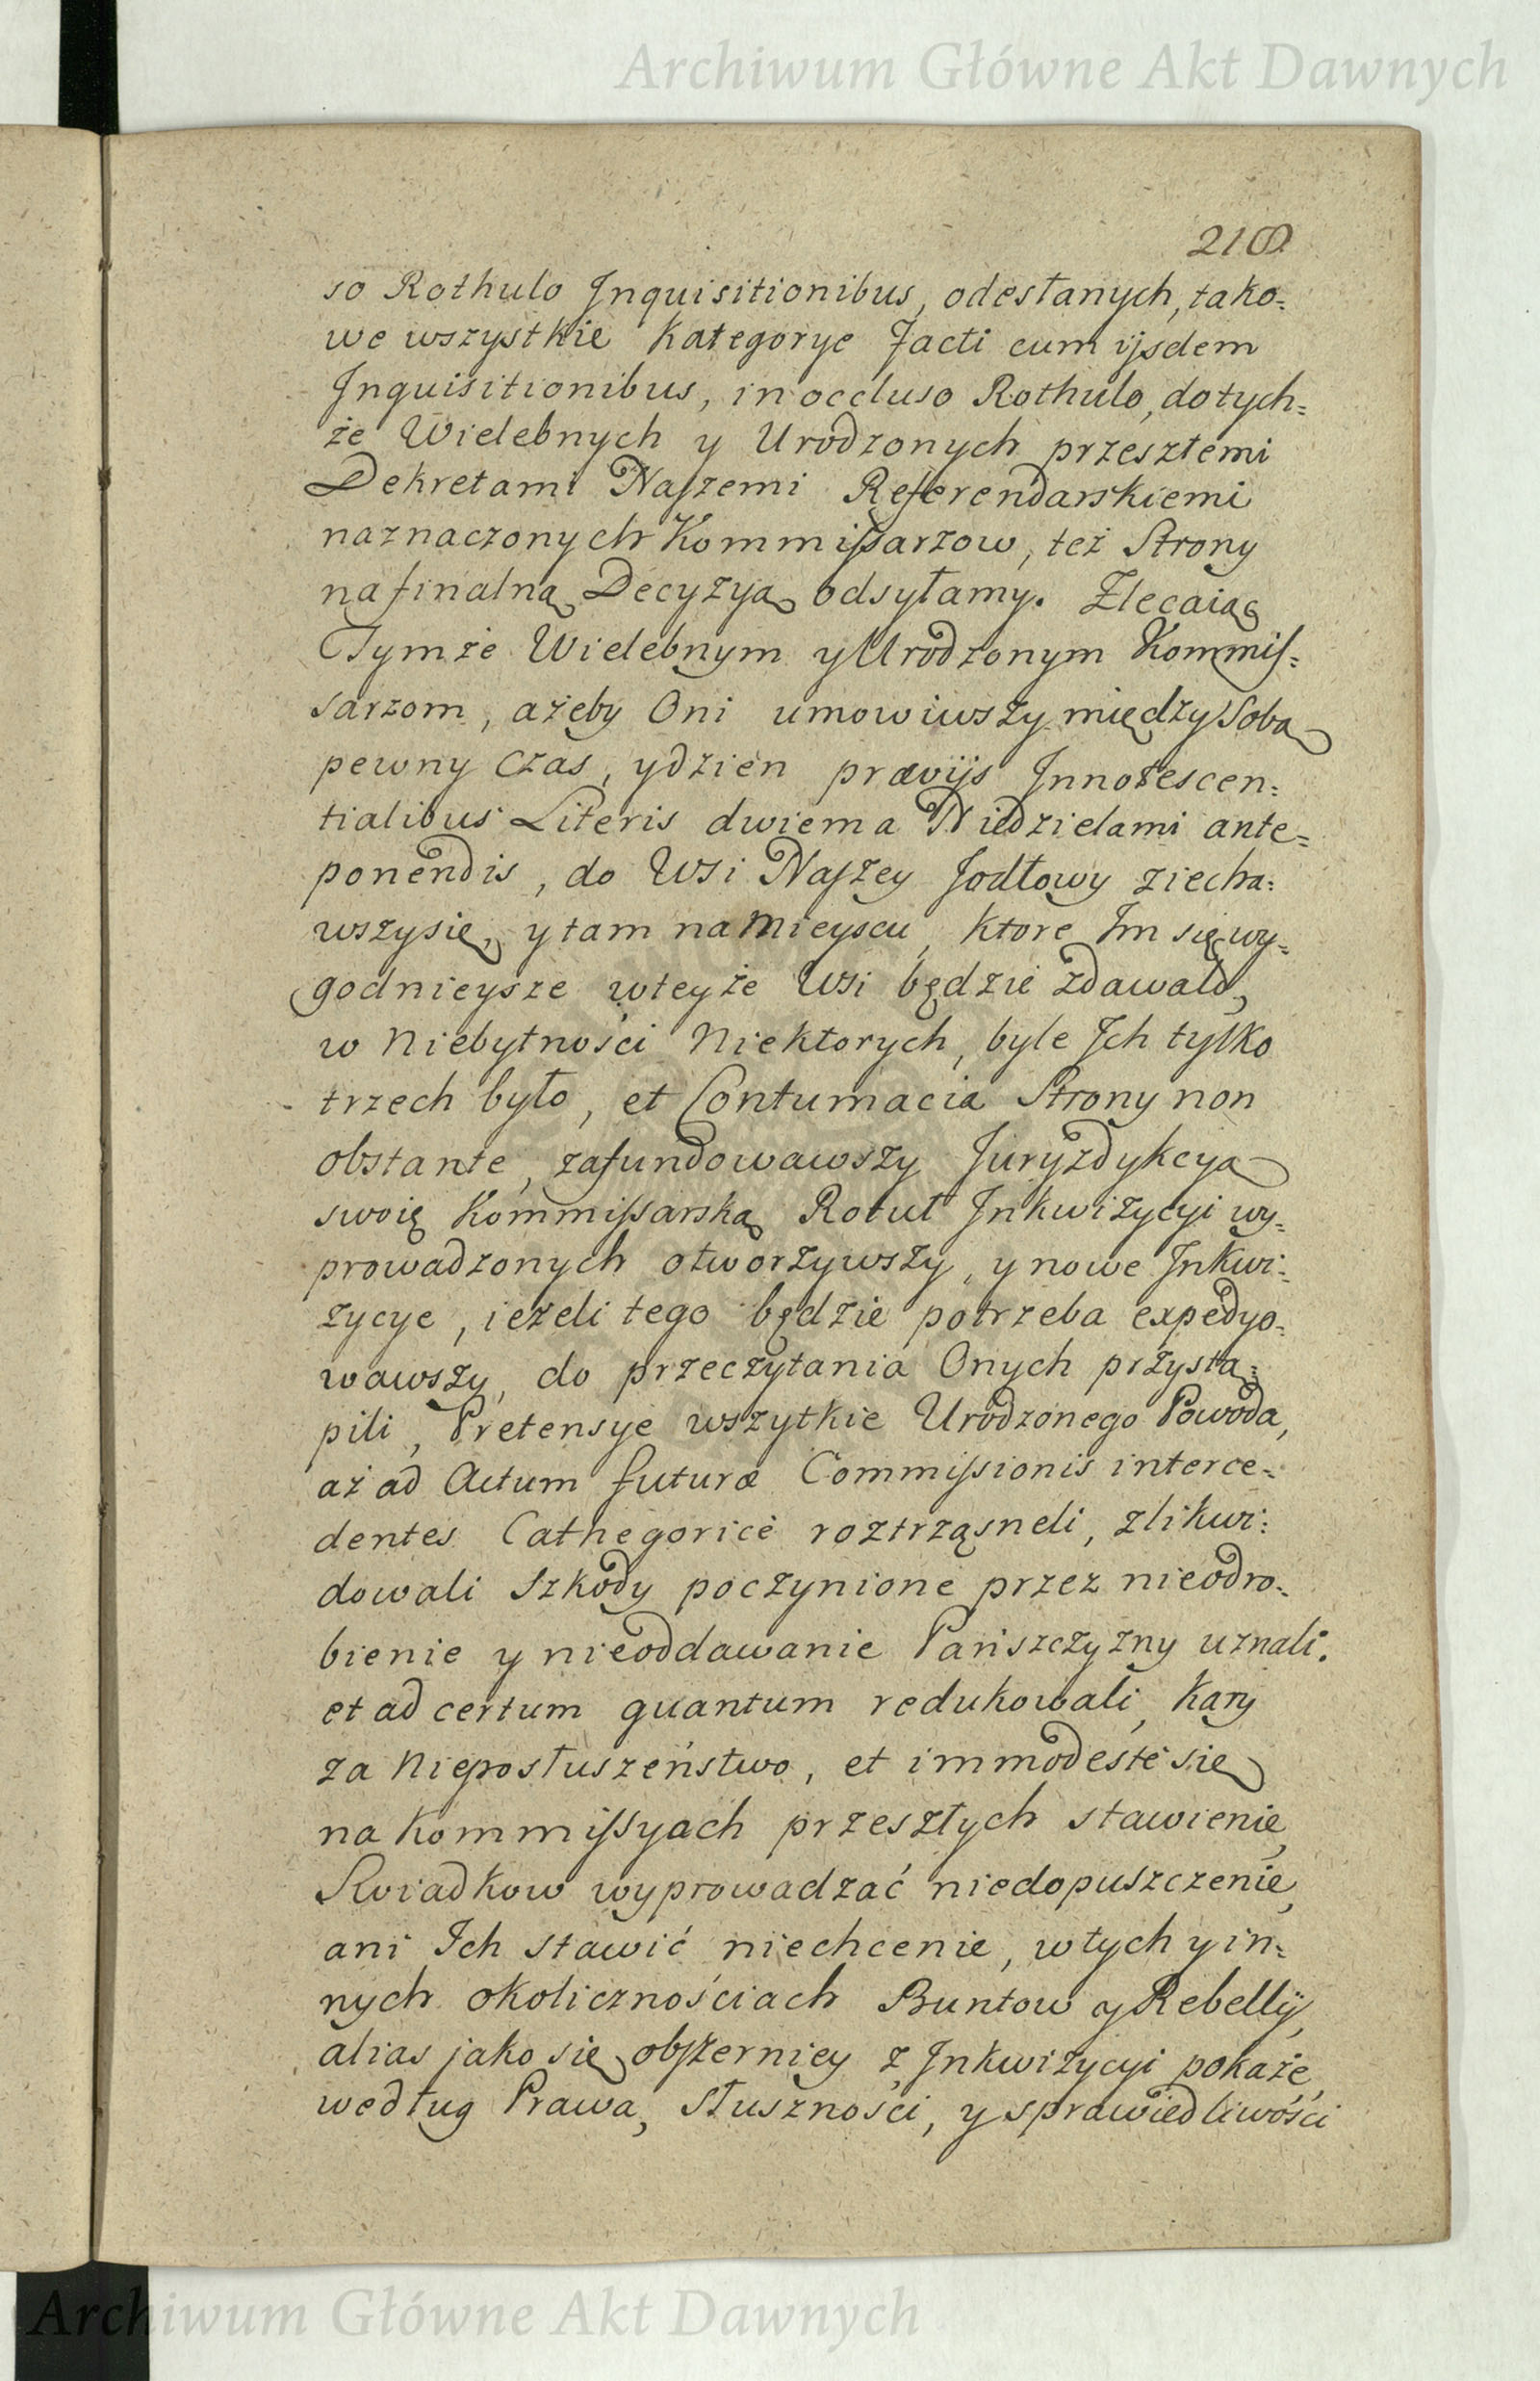 Archiwum Główne Akt Dawnych
218
so Rothulo Inquisitionibus, odesłanych, tako=
we wszystkie Kategorye Facti cum ijsdem
Inquisitionibus, in occluso Rothulo, do tych=
że Wielebnych y Urodzonych przeszłemi
Dekretami Naszemi Referendarskiemi
naznaczonych Kommissarzow, też Strony
na finalną Decyzyą odsyłamy. Zlecaiąc
Tymże Wielebnym y Urodzonym Kommis=
sarzom, ażeby Oni umowiwszy między Sobą
pewny czas, y dzień prævijs Innotescen=
tialibus Literis dwiema Niedzielami ante=
ponendis, do Wsi Naszey Jodłowy ziecha=
wszy się, y tam na Mieyscu, ktore Im się wy=
godnieysze w teyże Wsi będzie zdawało,
w Niebytności Niektorych, byle Ich tylko
trzech było, et Contumacia Strony non
obstante, zafundowawszy Juryzdykcyą
swoię Kommissarską Rotuł Inkwizycyi wy=
prowadzonych otworzywszy, y nowe Inkwi=
zycye, ieżeli tego będzie potrzeba expedyo=
wawszy, do przeczytania Onych przystą=
pili, Pretensye wszytkie Urodzonego Powoda,
aż ad Actum futuræ Commissionis interce=
dentes Cathegoricè roztrząsneli, zlikwi=
dowali Szkody poczynione przez nieodro=
bienie y nieoddawanie Pańszczyzny uznali.
et ad certum quantum redukowali, Kary
za Nieposłuszeństwo, et immodestè się
na Kommissyach przeszłych stawienie,
Swiadkow wyprowadzać niedopuszczenie,
ani Ich stawić niechcenie, w tych y in=
nych okolicznościach Buntow y Rebellij,
alias jako się obszerniey z Inkwizycyi pokaże,
według Prawa, Słuszności, y sprawiedliwości
Archiwum Główne Akt Dawnych